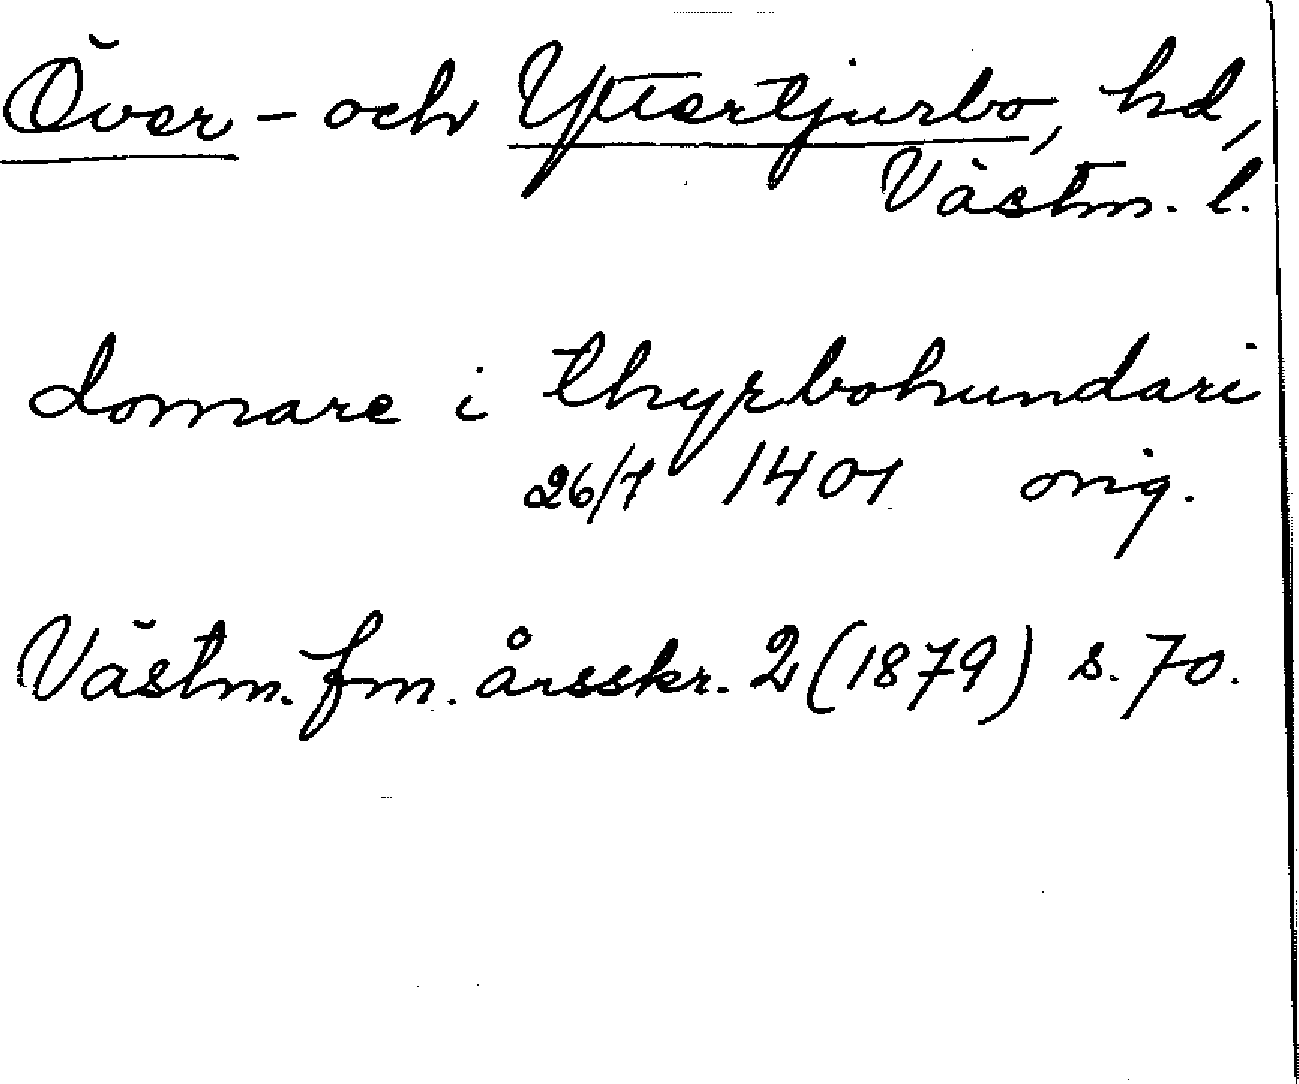 Över- och Yttertjurbo, hd,
Västm. l.
domare i thyrbohundari
26/7 1401 orig.
Västm. fm. årsskr. 2 (1879) s. 70.